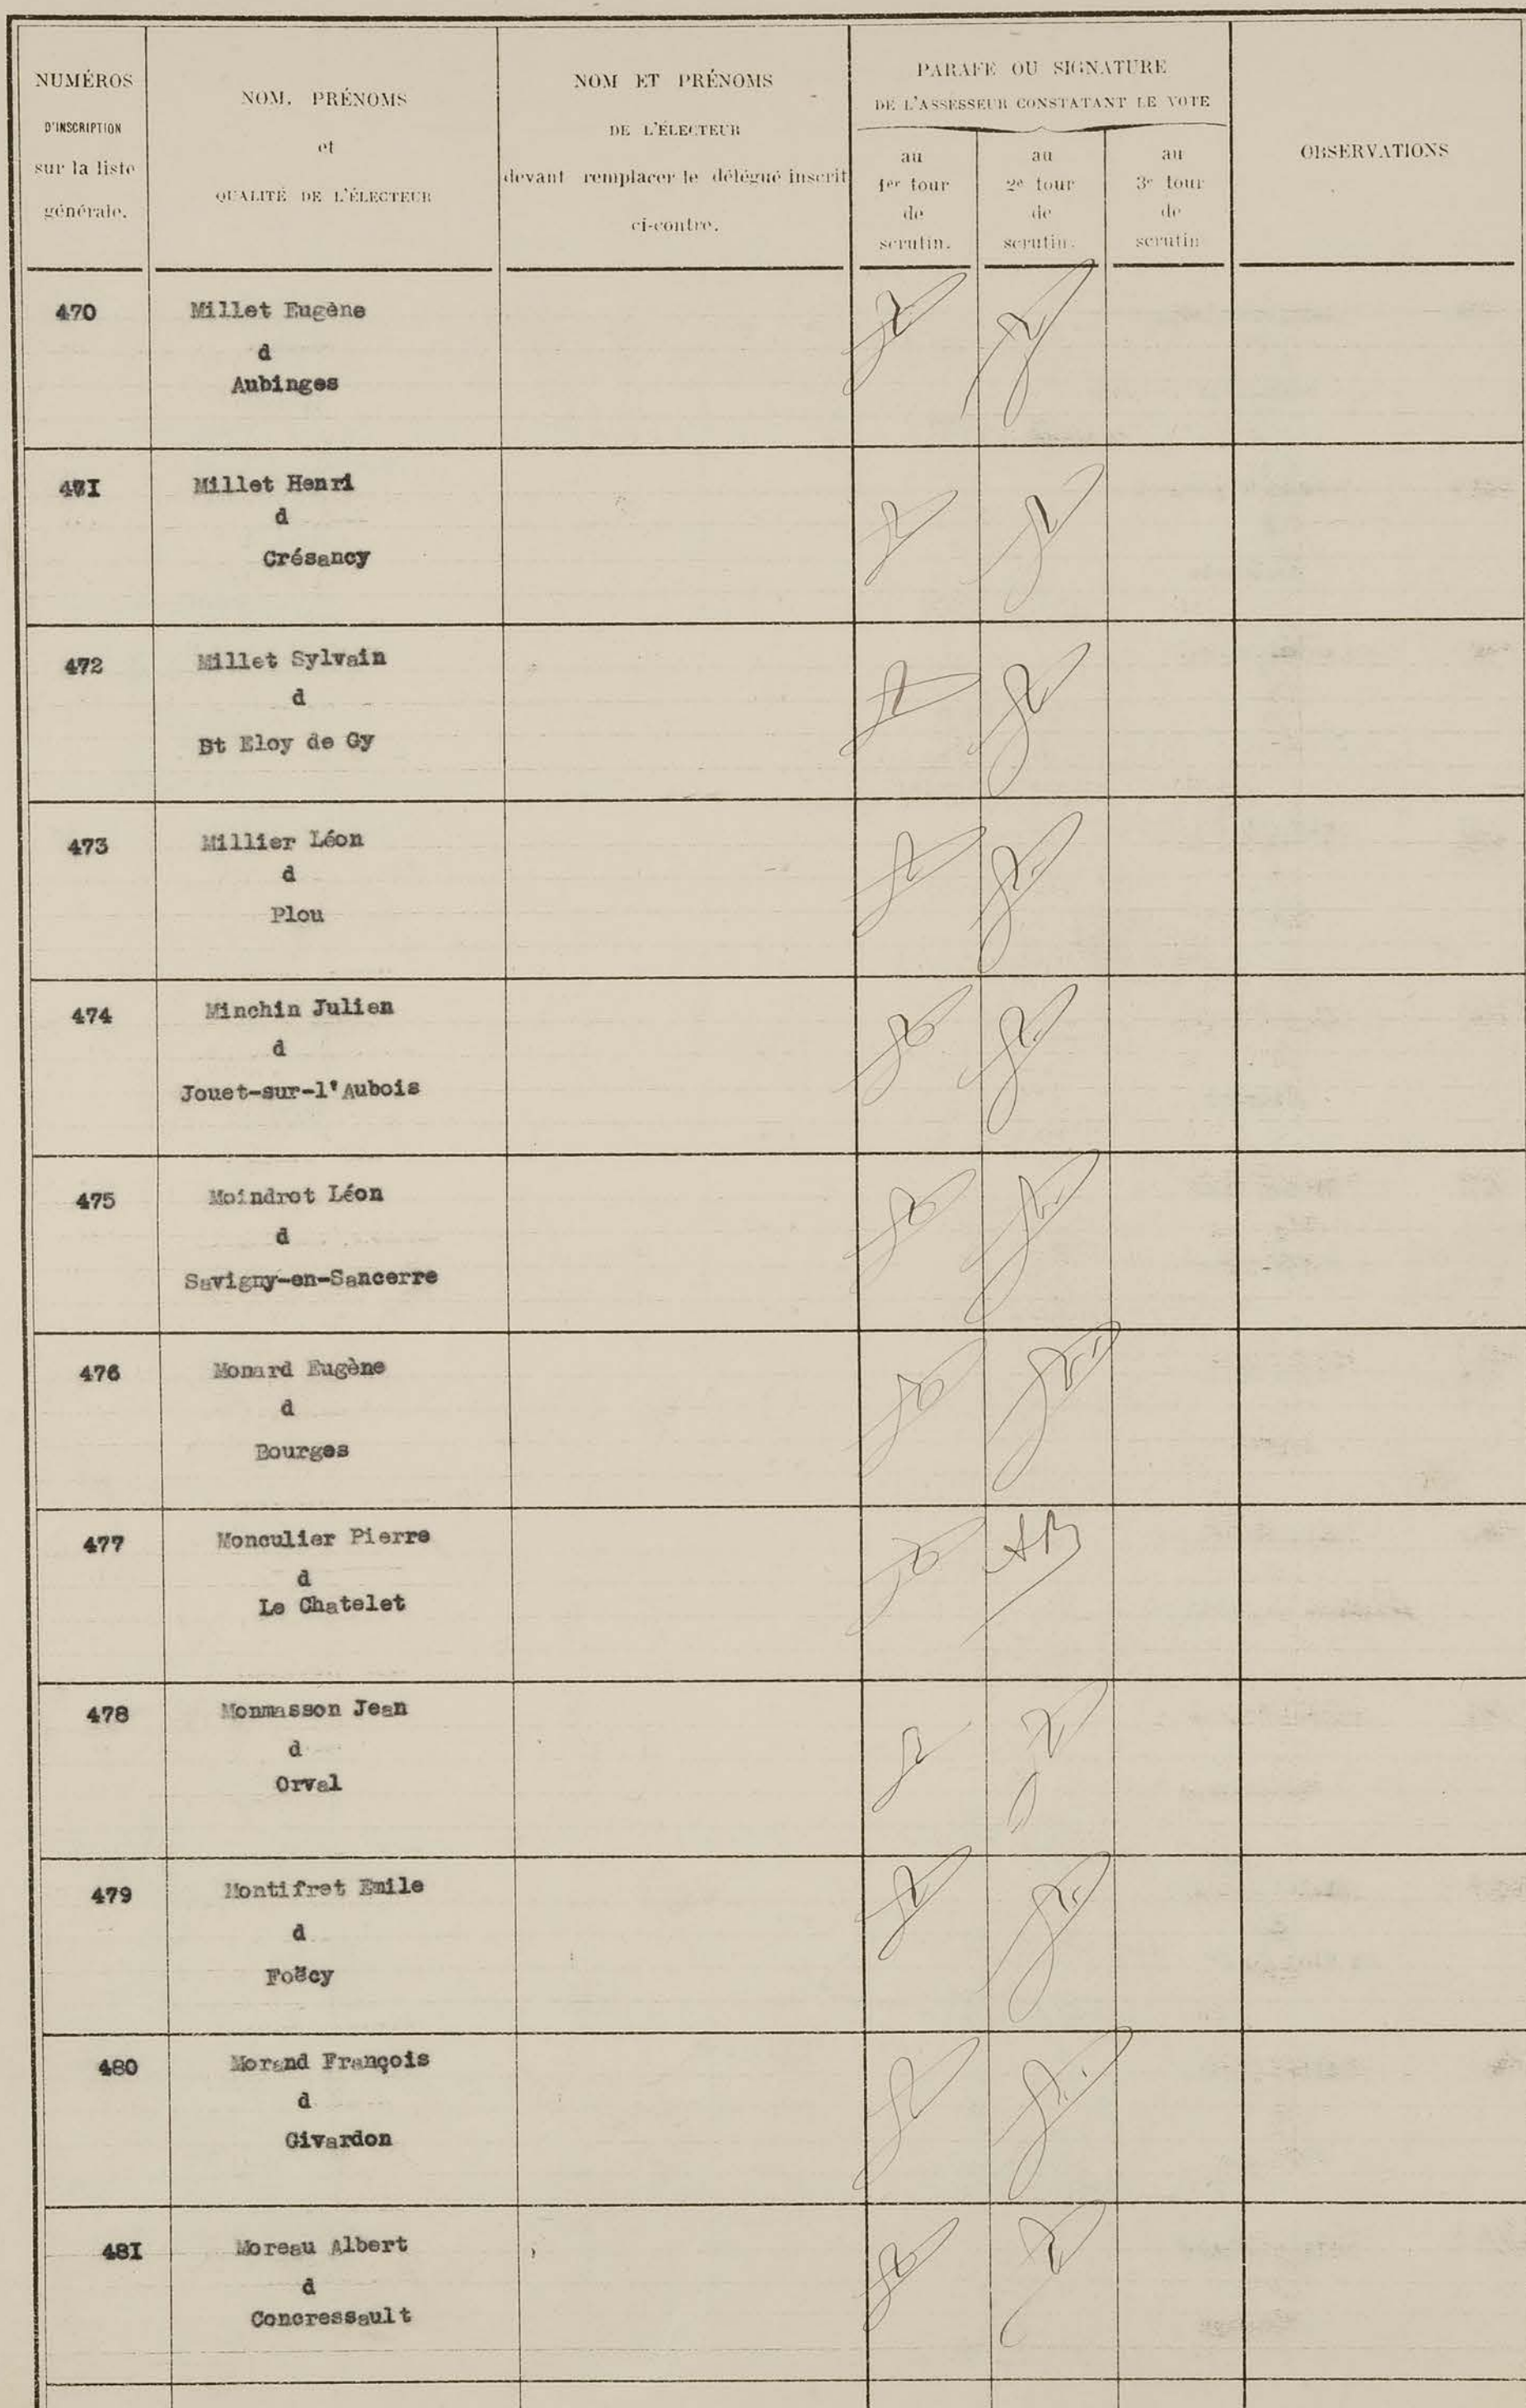 NUMÉROS
D'INSCRIPTION
sur la liste
générale.
NOM, PRÉNOMS
et
QUALITÉ DE L'ÉLECTEUR
NOM ET PRÉNOMS
DE L'ÉLECTEUR
devant remplacer le délégué inscrit
ci-contre.
PARAFE OU SIGNATURE
DE L'ASSESSEUR CONSTATANT LE VOTE
au
1er tour
de
scrutin.
au
2e tour
de
scrutin.
au
3e tour
de
scrutin
OBSERVATIONS
470
Millet Eugène
d
Aubinges
471
Millet Henri
d
Crésancy
472
Millet Sylvain
d
St Eloy de Gy
473
Millier Léon
d
Plou
474
Minchin Julien
d
Jouet-sur-l'Aubois
475
Moindrot Léon
d
Savigny-en-Sancerre
476
Monard Eugène
d
Bourges
477
Monculier Pierre
AB
d
Le Chatelet
478
Monmasson Jean
d
Orval
479
Montifret Emile
d
Foëcy
480
Morand François
d
Givardon
48I
Moreau Albert
d
Concressault